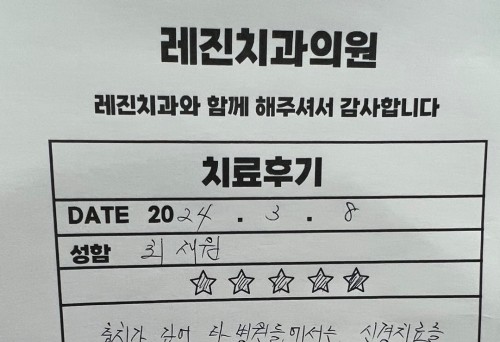 레진치과의원
레진치과와 함께 해주셔서 감사합니다
치료후기
DATE 2024 . 3 . 8
성함 최재원
충치가 깊어 타병원들에서는 신경치료를